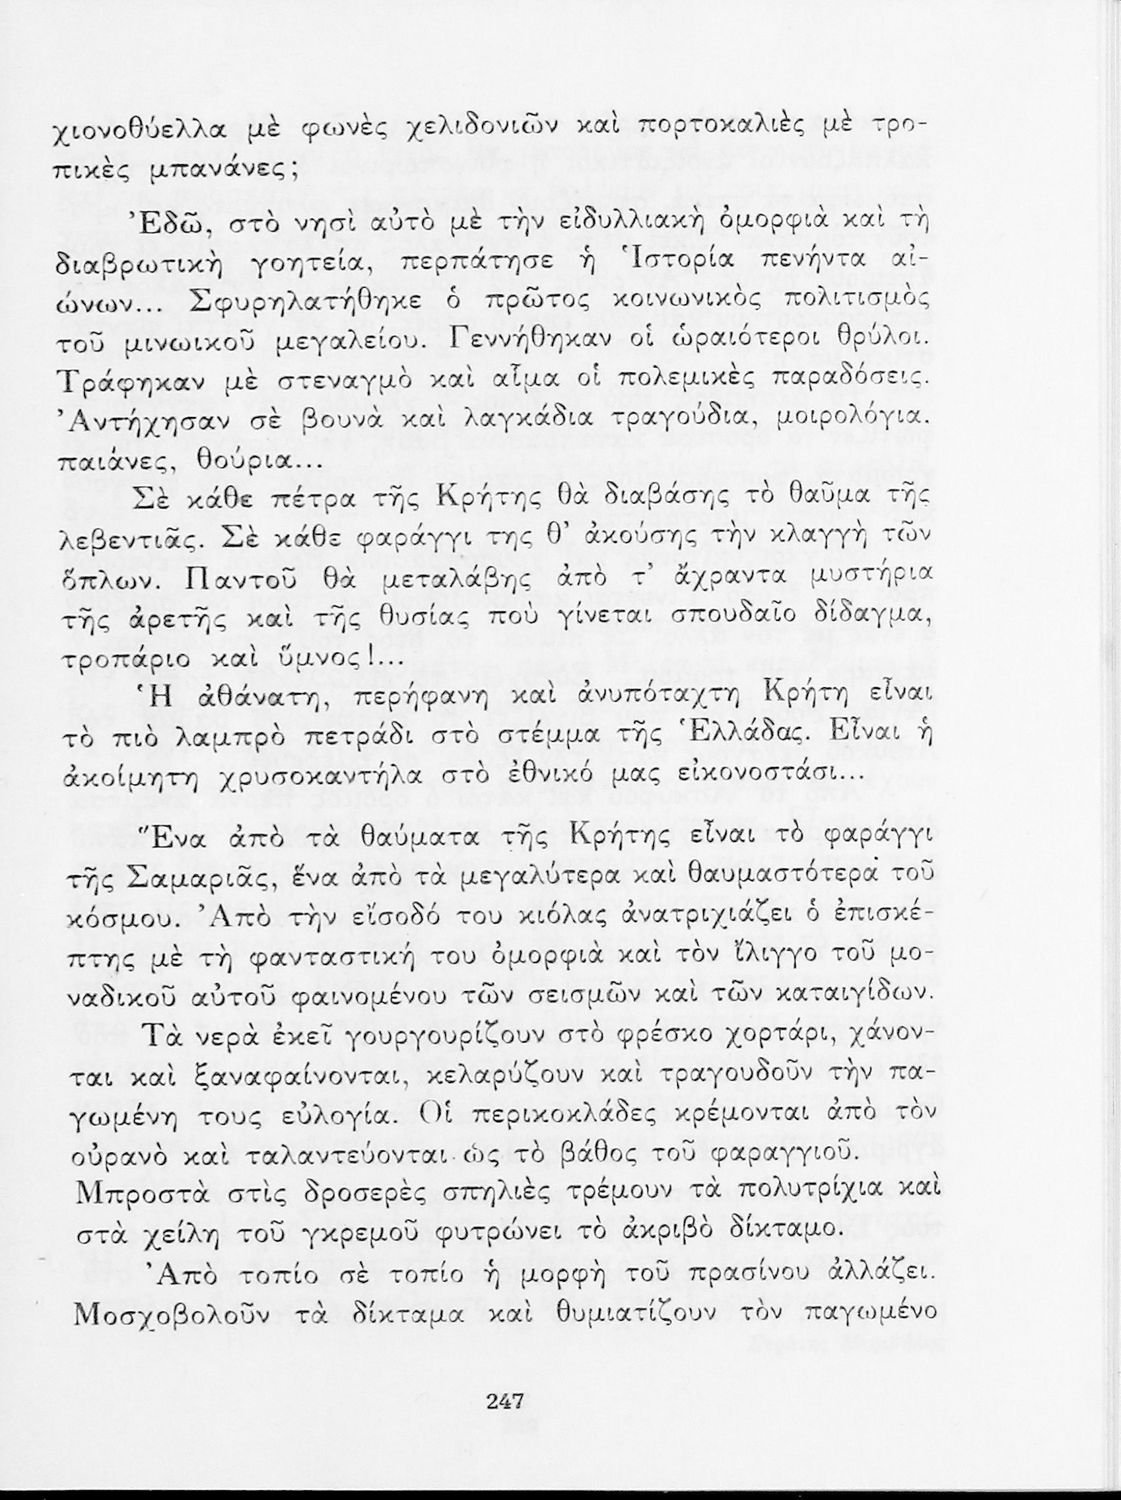 χιονοθύελλα μὲ φωνὲς χελιδονιῶν καὶ πορτοκαλιὲς μὲ τρο-
πικὲς μπανάνες;
Ἐδῶ, στὸ νησὶ αὐτὸ μὲ τὴν εἰδυλλιακὴ ὀμορφιὰ καὶ τὴ
διαβρωτικὴ γοητεία, περπάτησε ἡ Ἱστορία πενήντα αἰ-
ώνων... Σφυρηλατήθηκε ὁ πρῶτος κοινωνικὸς πολιτισμὸς
τοῦ μινωικοῦ μεγαλείου. Γεννήθηκαν οἱ ὡραιότεροι θρύλοι.
Τράφηκαν μὲ στεναγμὸ καὶ αἷμα οἱ πολεμικὲς παραδόσεις.
Ἀντήχησαν σὲ βουνὰ καὶ λαγκάδια τραγούδια, μοιρολόγια.
παιάνες, θούρια...
Σὲ κάθε πέτρα τῆς Κρήτης θὰ διαβάσης τὸ θαῦμα τῆς
λεβεντιᾶς. Σὲ κάθε φαράγγι της θ' ἀκούσης τὴν κλαγγὴ τῶν
ὅπλων. Παντοῦ θὰ μεταλάβης ἀπὸ τ' ἄχραντα μυστήρια
τῆς ἀρετῆς καὶ τῆς θυσίας ποὺ γίνεται σπουδαῖο δίδαγμα,
τροπάριο καὶ ὕμνος!...
Ἡ ἀθάνατη, περήφανη καὶ ἀνυπόταχτη Κρήτη εἶναι
τὸ πιὸ λαμπρὸ πετράδι στὸ στέμμα τῆς Ἑλλάδας. Εἶναι ἡ
ἀκοίμητη χρυσοκαντήλα στὸ ἐθνικό μας εἰκονοστάσι...
Ἕνα ἀπὸ τὰ θαύματα τῆς Κρήτης εἶναι τὸ φαράγγι
τῆς Σαμαριᾶς, ἕνα ἀπὸ τὰ μεγαλύτερα καὶ θαυμαστότερα τοῦ
κόσμου. Ἀπὸ τὴν εἴσοδό του κιόλας ἀνατριχιάζει ὁ ἐπισκέ-
πτης μὲ τὴ φανταστική του ὀμορφιὰ καὶ τὸν ἴλιγγο τοῦ μο-
ναδικοῦ αὐτοῦ φαινομένου τῶν σεισμῶν καὶ τῶν καταιγίδων.
Τὰ νερὰ ἐκεῖ γουργουρίζουν στὸ φρέσκο χορτάρι, χάνον-
ται καὶ ξαναφαίνονται, κελαρύζουν καὶ τραγουδοῦν τὴν πα-
γωμένη τους εὐλογία. Οἱ περικοκλάδες κρέμονται ἀπὸ τὸν
οὐρανὸ καὶ ταλαντεύονται ὡς τὸ βάθος τοῦ φαραγγιοῦ.
Μπροστὰ στὶς δροσερὲς σπηλιὲς τρέμουν τὰ πολυτρίχια καὶ
στὰ χείλη τοῦ γκρεμοῦ φυτρώνει τὸ ἀκριβὸ δίκταμο.
Ἀπὸ τοπίο σὲ τοπίο ἡ μορφὴ τοῦ πρασίνου ἀλλάζει.
Μοσχοβολοῦν τὰ δίκταμα καὶ θυμιατίζουν τὸν παγωμένο
247